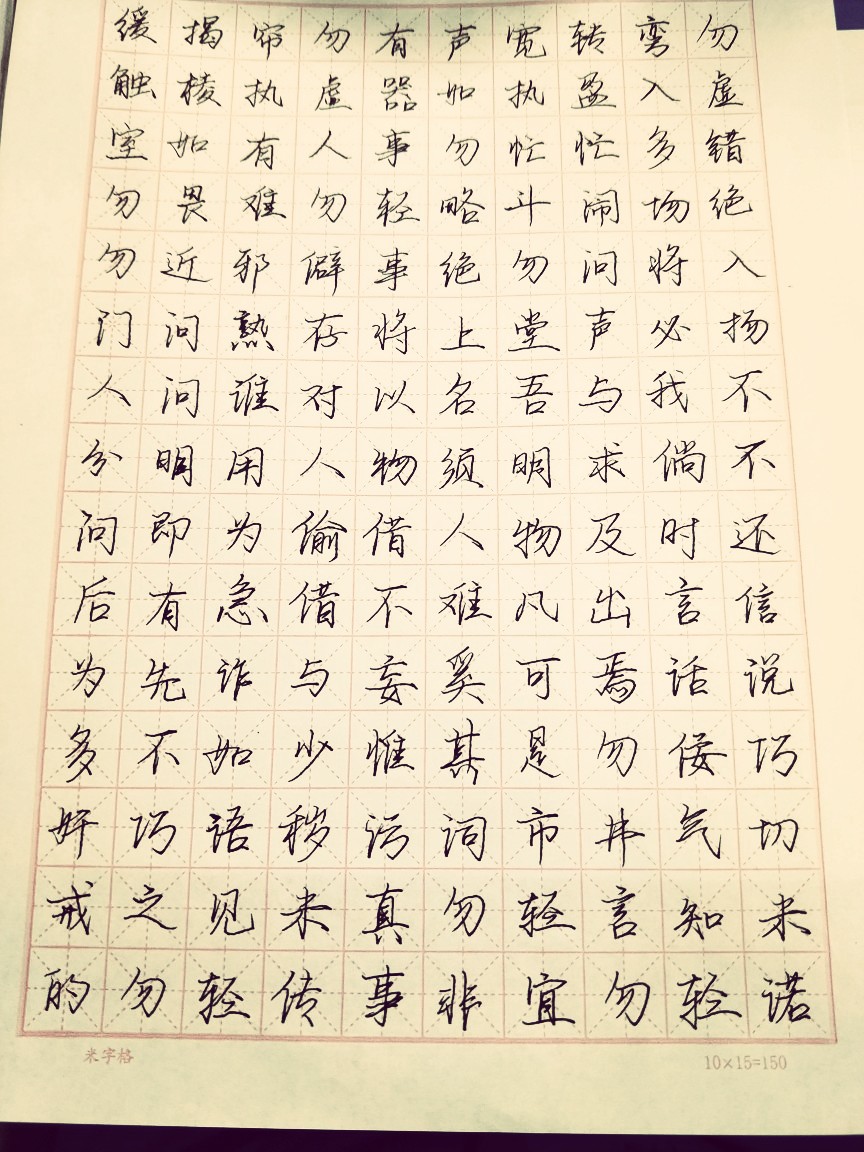 缓揭帘勿有声宽转弯勿
触棱执虚器如执盈入虚
室如有人事勿忙忙多错
勿畏难勿轻略斗闹场绝
勿近邪僻事绝勿问将入
门问孰存将上堂声必扬
人问谁对以名吾与我不
分明用人物须明求倘不
问即为偷借人物及时还
后有急借不难凡出言信
为先诈与妄奚可焉话说
多不如少惟其是勿佞巧
奸巧语秽污词市井气切
戒之见未真勿轻言知未
的勿轻传事非宜勿轻诺
米字格
10×15=150